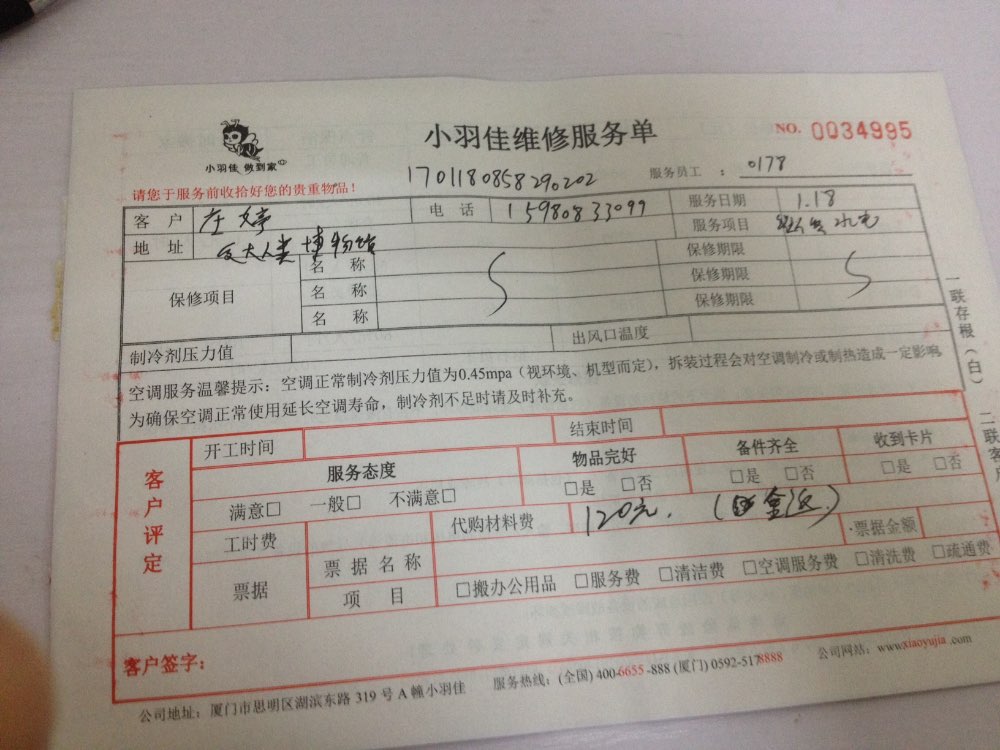 小羽佳 做到家
小羽佳维修服务单
NO. 0034995
1701180858290202
服务员工 : 0178
请您于服务前收拾好您的贵重物品!
客 户 电 话 15980833099 服务日期 1.18
地 址 人类博物馆 服务项目
保修项目 名 称 保修期限
名 称 保修期限
名 称 保修期限
制冷剂压力值 出风口温度
空调服务温馨提示:空调正常制冷剂压力值为0.45mpa(视环境、机型而定),拆装过程会对空调制冷或制热造成一定影响,
为确保空调正常使用延长空调寿命,制冷剂不足时请及时补充。
一联存根(白)
二联客户
客户评定
开工时间 结束时间
服务态度 物品完好 备件齐全 收到卡片
满意□ 一般□ 不满意□ □是 □否 □是 □否 □是 □否
工时费 代购材料费 120元. ·票据金额
票据 票据名称
项 目 □搬办公用品 □服务费 □清洁费 □空调服务费 □清洗费 □疏通费
客户签字:
公司地址:厦门市思明区湖滨东路 319 号 A 幢小羽佳 服务热线:(全国) 400-6655-888 (厦门) 0592-5178888 公司网站:www.xiaoyujia.com